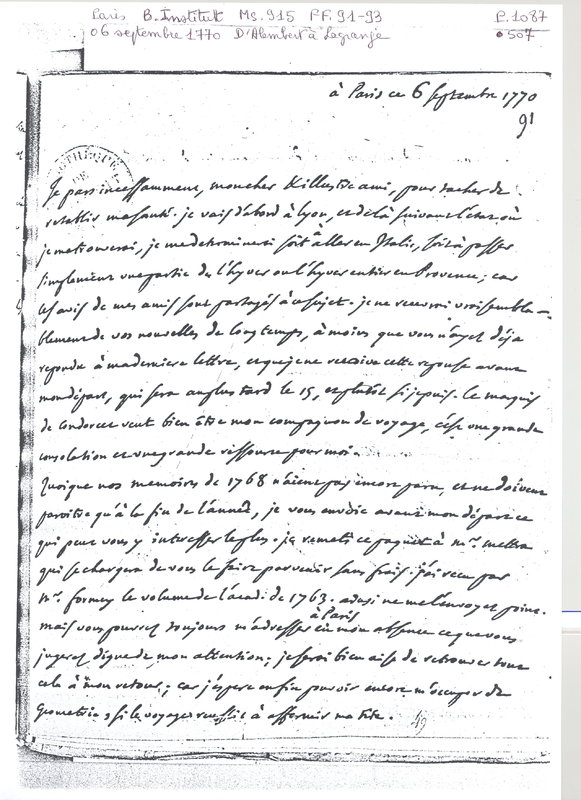 Paris B. Institut Ms. 915 FF. 91-93 P. 1087
06 septembre 1770 D'Alembert à Lagrange • 507
à Paris ce 6 septembre 1770
91
Je pars incessamment, mon cher & illustre ami, pour tacher de
retablir ma santé. je vais d'abord à Lyon, et de là suivant l'etat où
je me trouverai, je me determinerai soit à aller en Italie, soit à passer
simplement une partie de l'hyver ou l'hyver entier en Provence ; car
les avis de mes amis sont partagés à ce sujet. je ne recevrai vraisembla-
blement de vos nouvelles de longtemps, à moins que vous n'ayez déja
repondu à ma derniere lettre, et que je ne recoive cette reponse avant
mon départ, qui sera au plus tard le 15, et plutôt si je puis. Le marquis
de Condorcet veut bien être mon compagnon de voyage, c'est une grande
consolation et une grande ressource pour moi.
Quoique nos memoires de 1768 n'aient pas encore paru, et ne doivent
paroitre qu'à la fin de l'année, je vous envoie avant mon départ ce
qui peut vous y interesser le plus. je remets ce paquet à Mr. Mettra
qui se chargera de vous le faire parvenir sans frais. j'ai recu par
Mr. Formey le volume de l'acad. de 1763. ainsi ne me l'envoyez point.
mais vous pourrez toujours m'adresser à Paris en mon absence ce que vous
jugerez digne de mon attention ; je serai bien aise de retrouver tout
cela à mon retour ; car j'espere enfin pouvoir encore m'occuper de
Geometrie, si le voyage reussit à affermir ma tête.
49